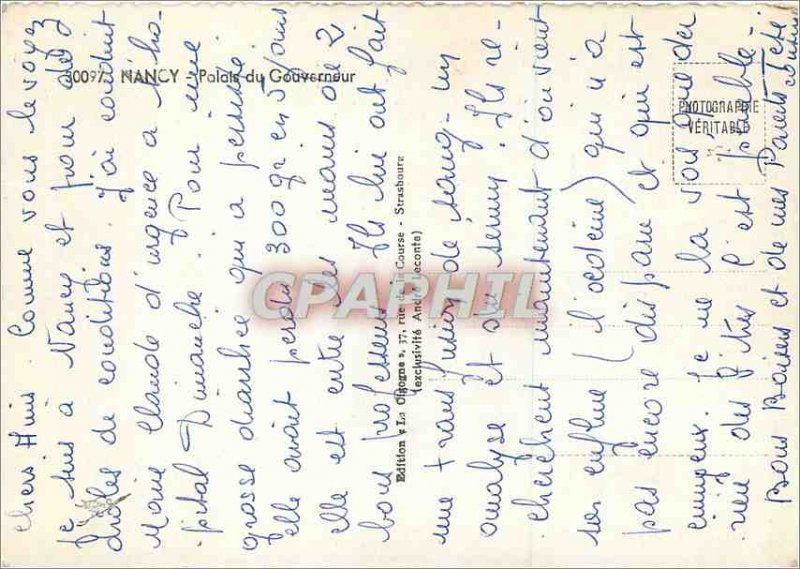 300973 NANCY - Palais du Gouverneur
PHOTOGRAPHIE
VÉRITABLE
Edition « La Cigogne », 37, rue de la Course - Strasbourg
(exclusivité André Leconte)
CPARPHIL
chers Amis Comme vous le voyez
je suis à Nancy et pour des
drôles de conditions. J'ai conduit
Marie Claude d'urgence à l'hô-
pital Dimanche. Pour une
grosse diarrhée qui a persisté
elle avait perdu 300 gr en 5 jours
elle est entre les mains de 2
bons professeurs. Ils lui ont fait
une transfusion de sang - une
analyse et du sérum. Ils re-
cherchent maintenant d'où vient
son enflure (l'oedème) qui n'a
pas encore disparu et qui est
ennuyeux. Je ne la vois que
rien des vitres c'est pénible.
Bons Baisers et de mes Parents